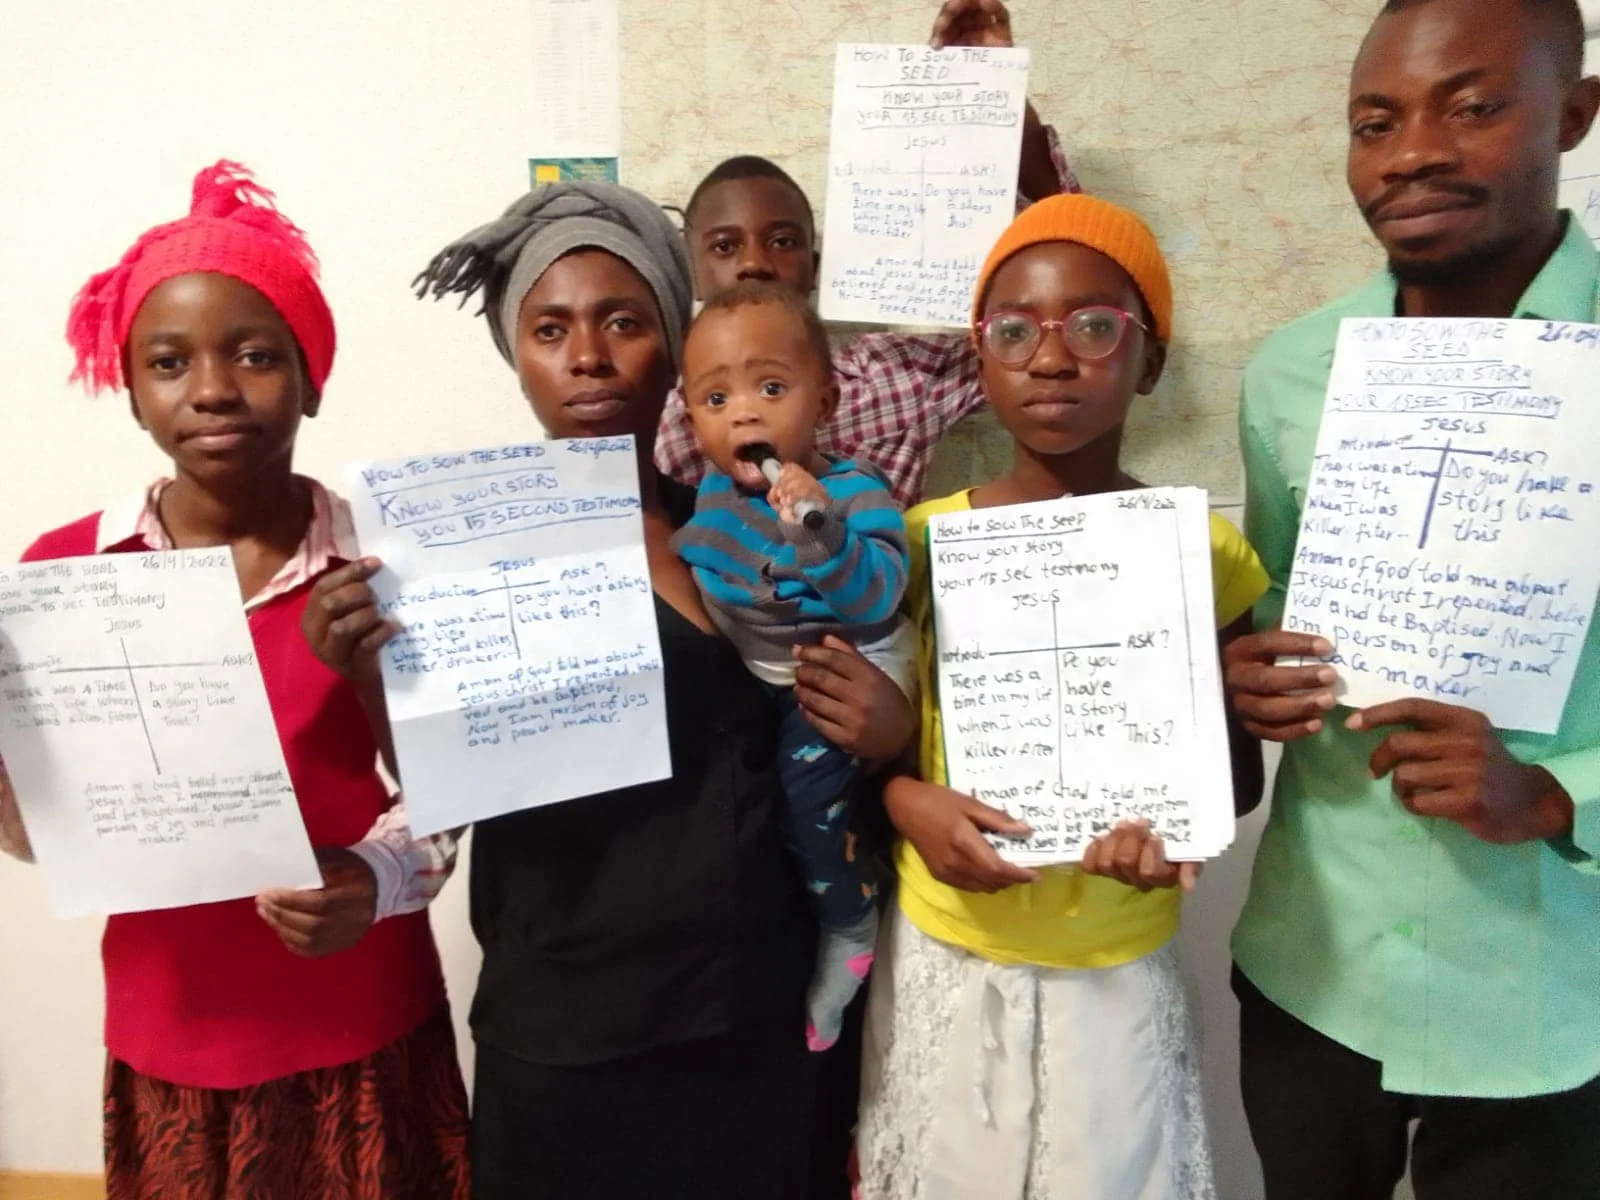 HOW TO SOW THE
SEED
KNOW YOUR STORY
YOUR 15 SEC TESTIMONY
Jesus
ASK?
There was a
time in my life
when I was
killer, fiter
Do you have
a story
this?
A man of God told
about Jesus christ I re
believed and be Baptis
Now I am person of J
peace Maker
SOW THE SEED 26/4/2022
YOUR STORY
YOUR 15 SEC TESTIMONY
Jesus
ASK?
THERE WAS A TIME
in my life, when
I was killer, fiter
Do you have
a story like
that?
A man of God told me about
Jesus christ I
and be Baptised, now I am
person of joy and peace
maker.
HOW TO SOW THE SEED 26/4/2022
KNOW YOUR STORY
YOU 15 SECOND TESTIMONY
JESUS
introductin
ASK?
There was a time
in my life
when I was killer,
fiter, druker...
Do you have a story
like this?
A man of God told me about
Jesus christ I repented, beli
ved and be Baptised,
Now I am person of joy
and peace maker.
How to sow The seed 26/4/202
Know your story
your 15 sec testimony
Jesus
introdu
ASK?
There was a
time in my lif
when I was
killer, fiter
.....
Do you
have
a story
Like This?
A man of God told me
Jesus christ I repenten
and be now
person of peace
HOW TO SOW THE 26.04
SEED
KNOW YOUR STORY
YOUR 15SEC TESTIMONY
Jesus
introducte
ASK?
There was a time
in my life
when I was
killer, fiter...
Do you have a
story like
this
A man of God told me about
Jesus christ I repented, belie
ved and be Baptised. Now I
am person of joy and
peace maker.